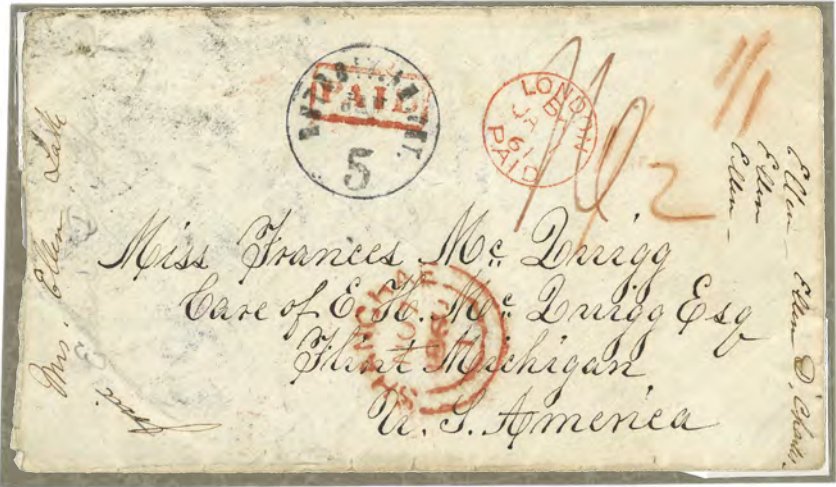 PAID
5
LONDON
PAID
1/1
2
Miss Frances Mc Quigg
Care of E. H. Mc Quigg Esq
Flint Michigan
U. S. America
SHANGHAI
Mrs. Ellen
Ellen
Ellen
Ellen Ellen D.